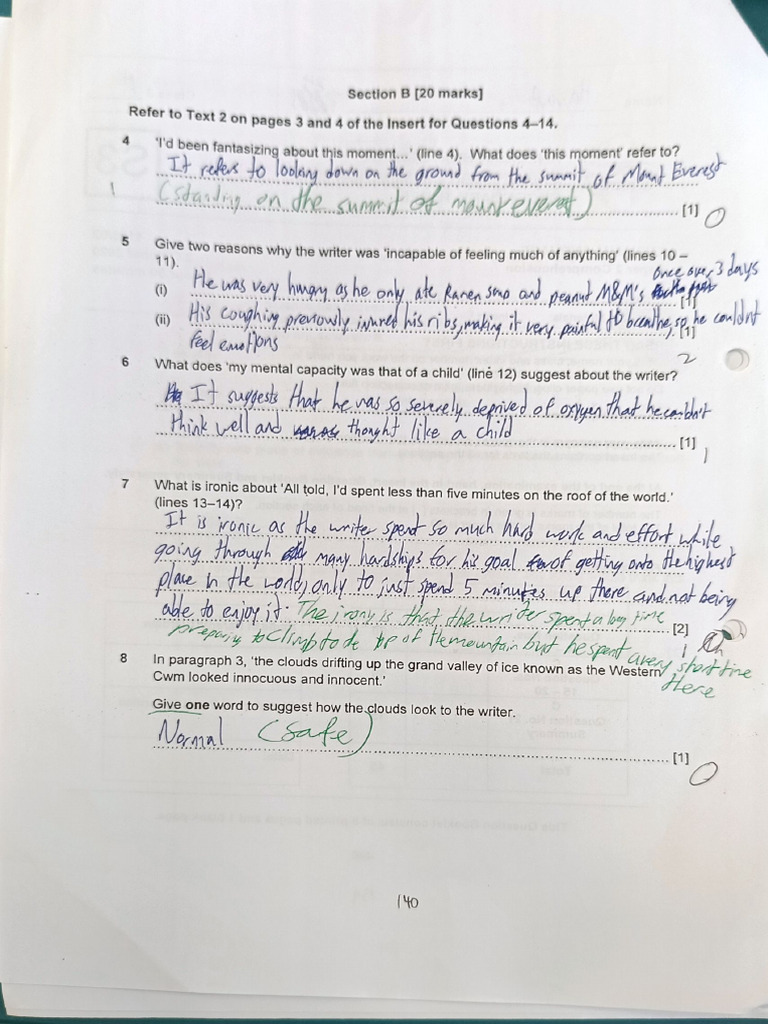 Section B [20 marks]
Refer to Text 2 on pages 3 and 4 of the Insert for Questions 4–14.
4 'I'd been fantasizing about this moment...' (line 4). What does 'this moment' refer to?
It refers to looking down on the ground from the summit of Mount Everest
1 (standing on the summit of mount everest) [1] 0
5 Give two reasons why the writer was 'incapable of feeling much of anything' (lines 10 –
11).
once over 3 days
(i) He was very hungry as he only ate Ramen soup and peanut M&M's [1]
(ii) His coughing previously injured his ribs, making it very painful to breathe, so he couldnt [1]
feel emotions
2
6 What does 'my mental capacity was that of a child' (line 12) suggest about the writer?
It suggests that he was so severely deprived of oxygen that he couldn't
think well and thought like a child [1]
1
7 What is ironic about 'All told, I'd spent less than five minutes on the roof of the world.'
(lines 13–14)?
It is ironic as the writer spent so much hard work and effort while
going through many hardships for his goal of getting onto the highest
place in the world, only to just spend 5 minutes up there and not being
able to enjoy it. The irony is that the writer spent a long time [2]
preparing to climb to de top of the mountain but he spent a very short time
there
1
8 In paragraph 3, 'the clouds drifting up the grand valley of ice known as the Western
Cwm looked innocuous and innocent.'
Give one word to suggest how the clouds look to the writer.
Normal (safe)
[1]
0
140